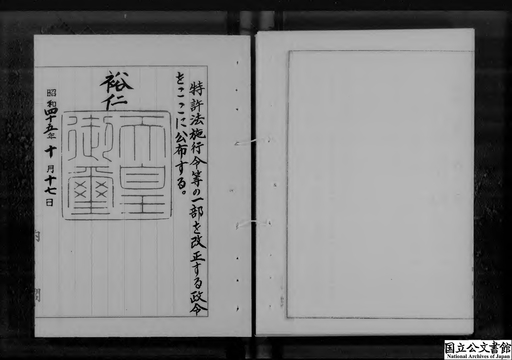 特許法施行令等の一部を改正する政令
をここに公布する。
裕仁
天皇
御璽
昭和四十五年十月十七日
内閣
国立公文書館
National Archives of Japan